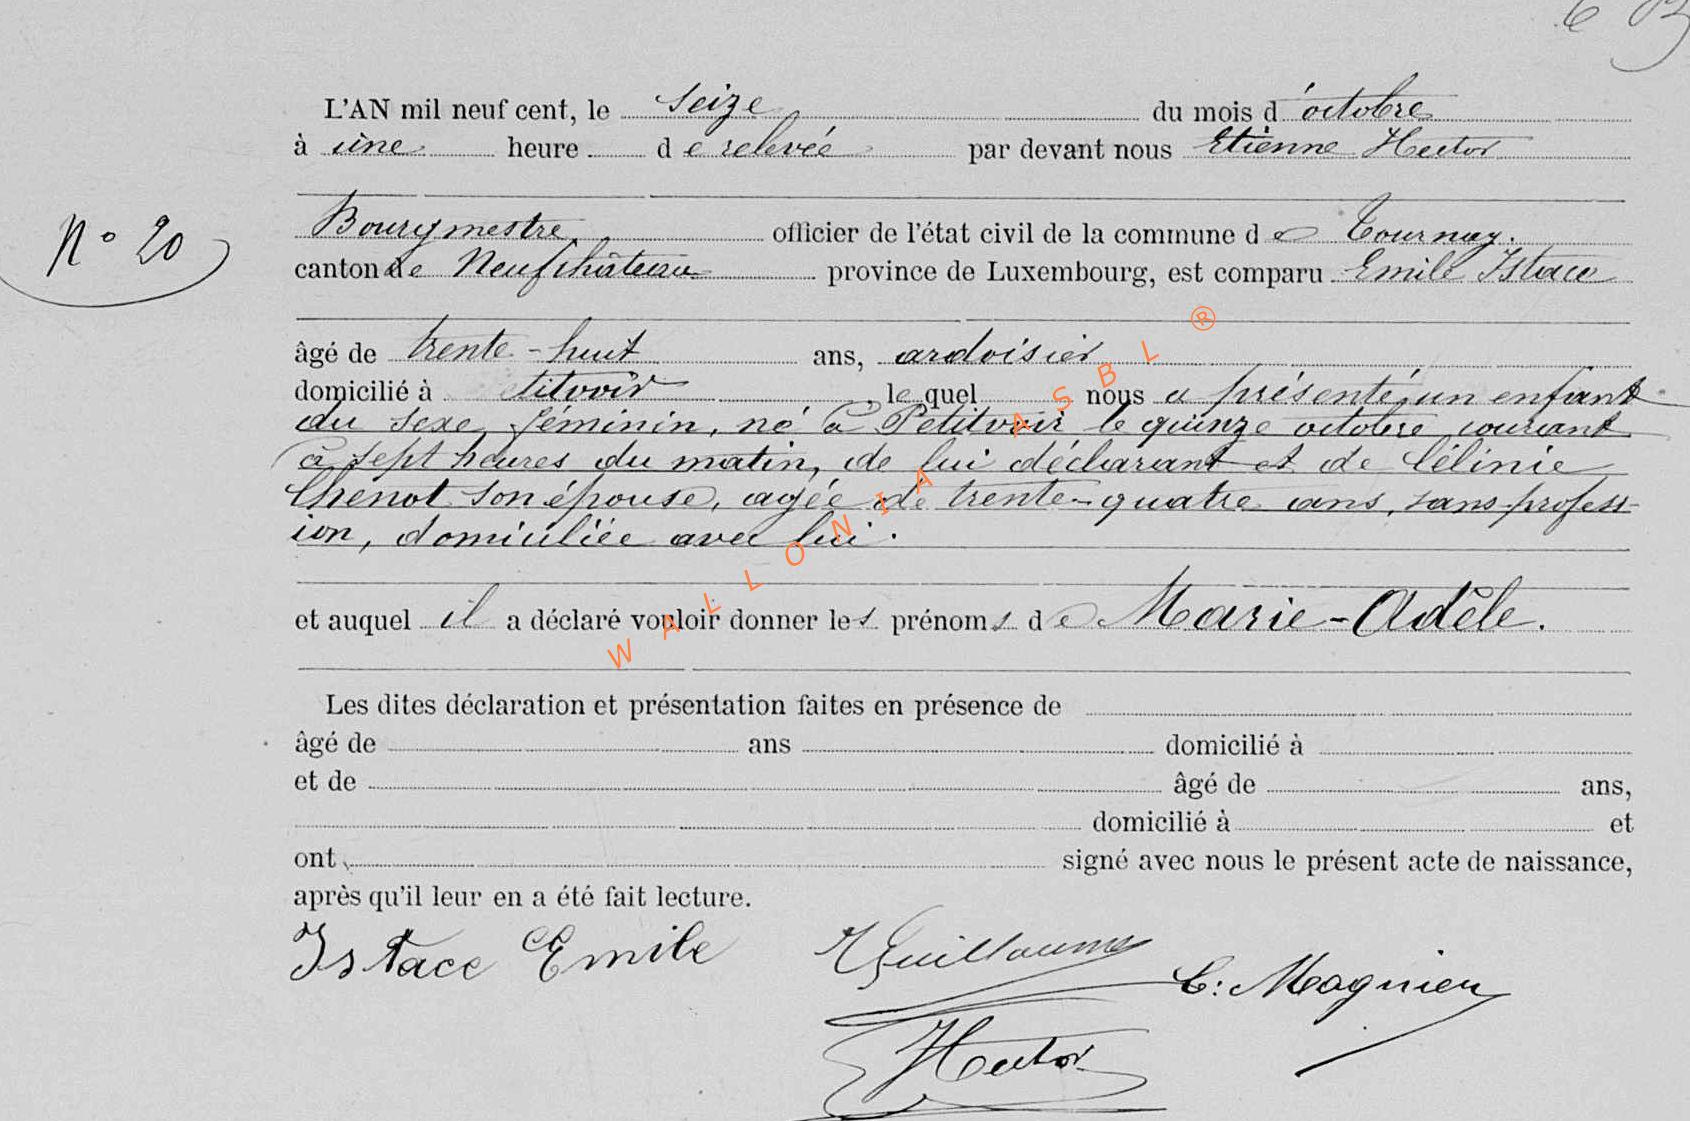 L'AN mil neuf cent, le seize du mois d'octobre
à une heure de relevée par devant nous Etienne Hector
N° 20
Bourgmestre officier de l'état civil de la commune de Tournay.
canton de Neufchâteau province de Luxembourg, est comparu Emile Istace
âgé de trente-huit ans, ardoisier
domicilié à titvoir, lequel nous a présenté un enfant
du sexe féminin, né à Petitvoir le quinze octobre courant
à sept heures du matin, de lui déclarant et de Célinie
Chenot son épouse, agée de trente-quatre ans, sans profess-
ion, domiciliée avec lui.
et auquel il a déclaré vouloir donner les prénoms de Marie-Adèle.
Les dites déclaration et présentation faites en présence de
âgé de ans domicilié à
et de âgé de ans,
domicilié à et
ont signé avec nous le présent acte de naissance,
après qu'il leur en a été fait lecture.
Istace Emile Guillaume C: Magnien
Hector
WALLONIA ASBL ®